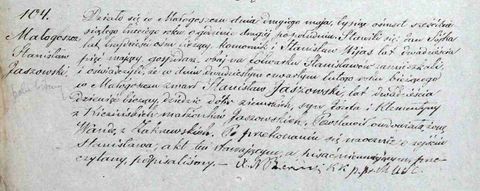 104.
Małogoszcz
Stanisław
Jaszowski
Działo się w Małogoszczu dnia drugiego maja, tysiąc ośmset sześćdzie
siątego trzeciego roku o godzinie drugiej po południu. Stawili się Jan
lat czterdzieści ośm liczący, komornik i Stanisław Wijas lat dwadzieścia
pięć mający gospodarz, obaj na folwarku Stanisławów zamieszkali
i oświadczyli, że w dniu dwudziestym czwartym lutego roku bieżącego
w Małogoszczu zmarł Stanisław Jaszowski, lat dwadzieścia
dziewięć liczący, dziedzic dóbr ziemskich, syn Józefa i Klementyny
z małżonków Jaszowskich. Zostawił owdowiałą żonę
Wandę z Po przekonaniu się naocznie o zejściu
Stanisława, akt ten stawającym, a pisać nieumiejącym prze
czytany, podpisaliśmy. —